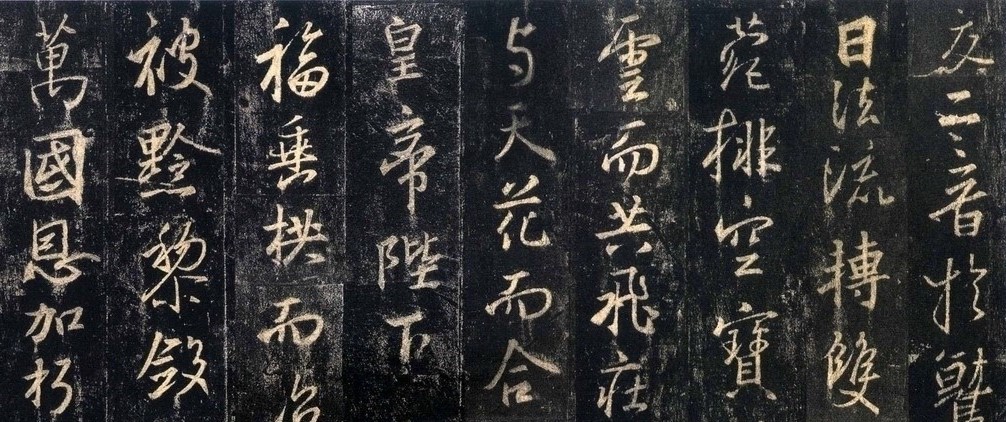 交二音於鷲
日法流轉雙
菀排空寶
雲而共飛莊
与天花而合
皇帝陛下
福垂拱而治
被黔黎斂
萬國恩加朽